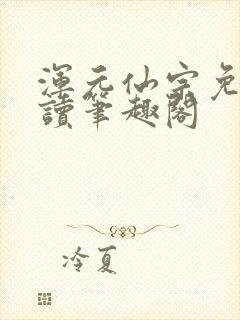 渾元仙宗免
讀筆趣閣
冷夏